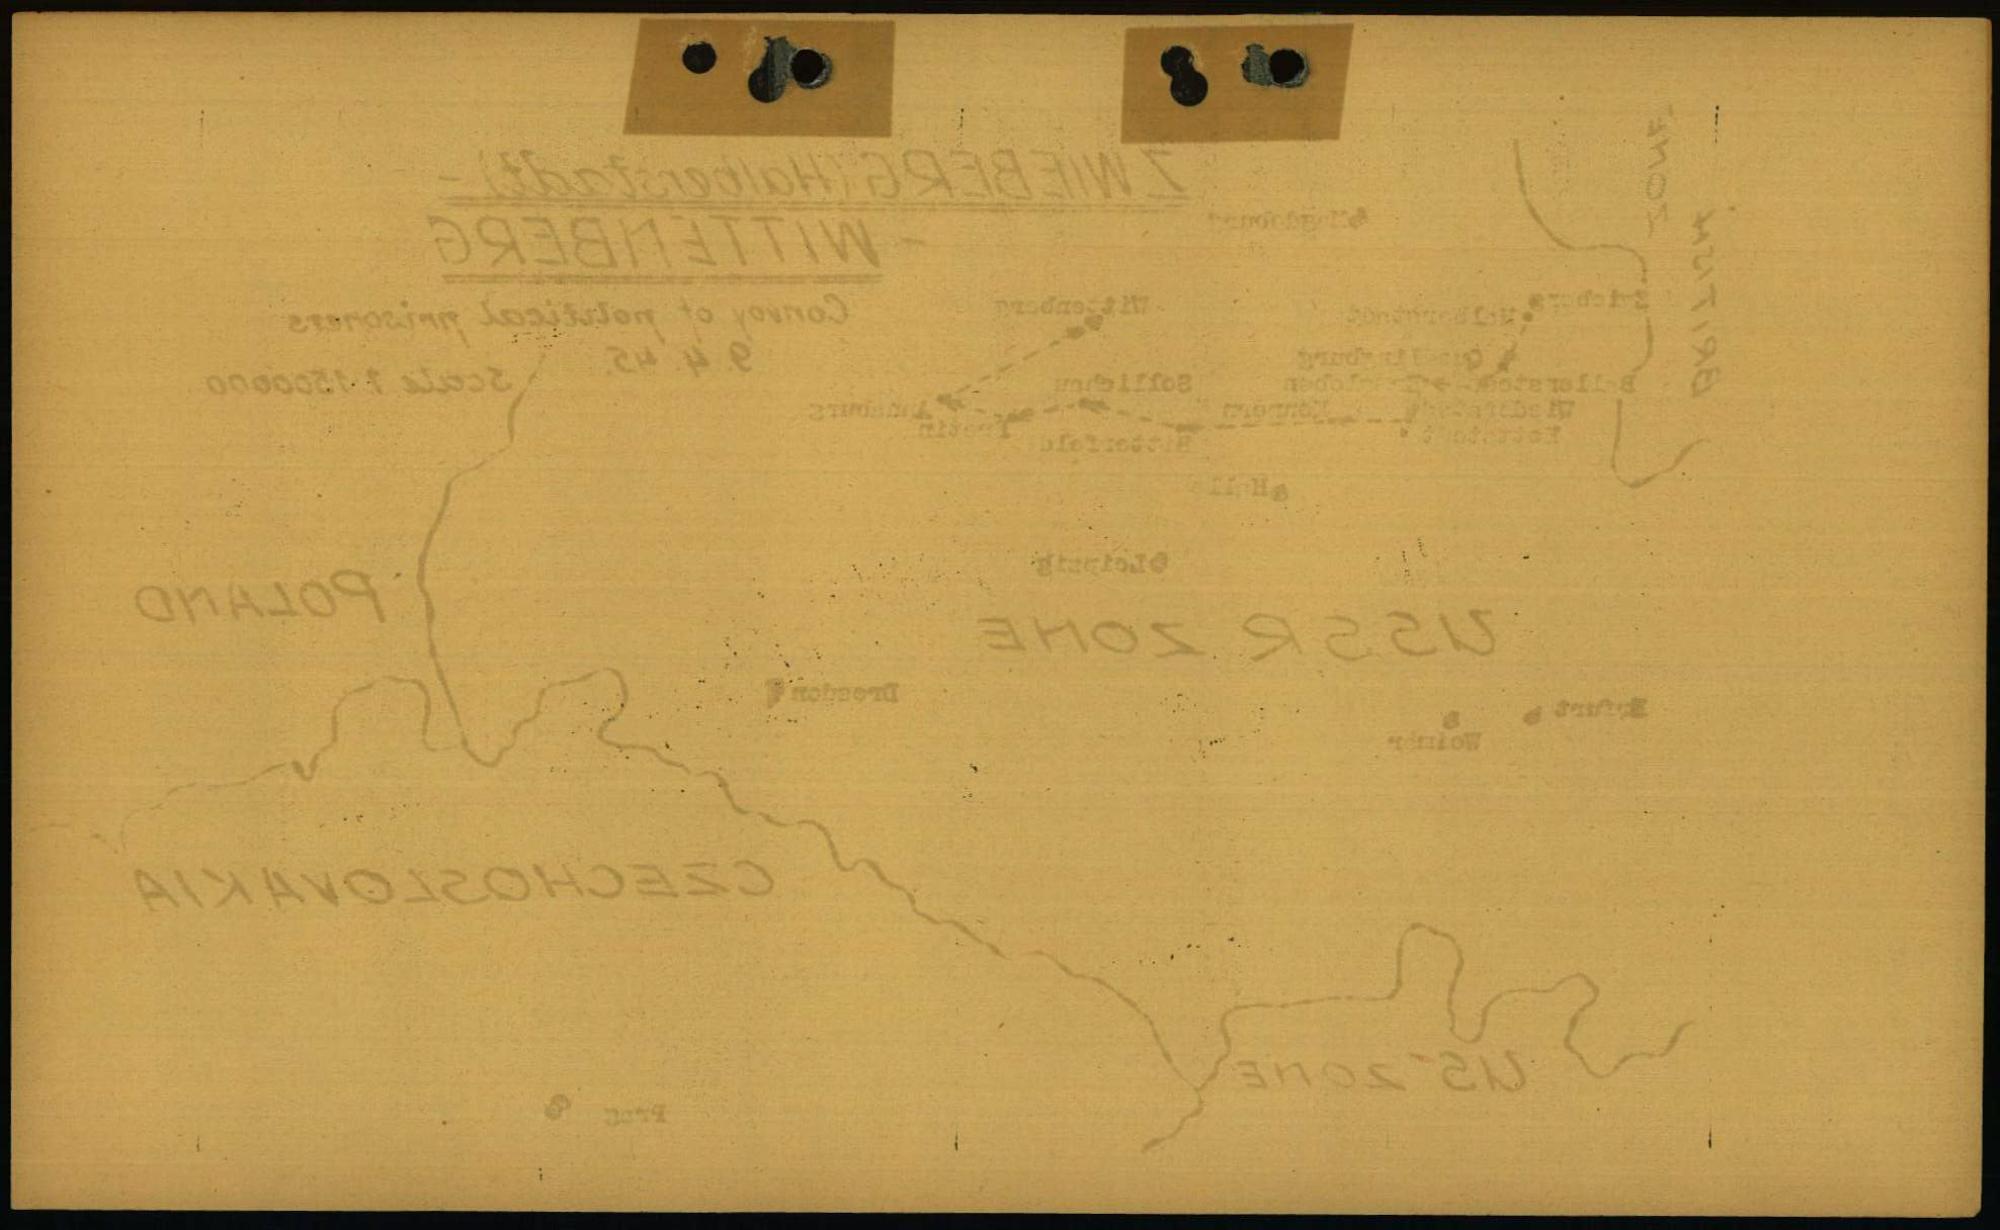 ZWIEBERG (Halberstadt) -
- WITTENBERG
Convoy of political prisoners
9. 4. 45.
Scale 1:1500000
BRITISH
ZONE
Magdeburg
Zwieberg
Halberstadt
Wittenberg
Quedlinburg
Ballerstedt
Söllichau
Könnern
Wiederstedt
Annaburg
Hettstedt
Bitterfeld
Pretin
Halle
Leipzig
POLAND
USSR ZONE
Dresden
Erfurt
Weimar
CZECHOSLOVAKIA
US ZONE
Prag